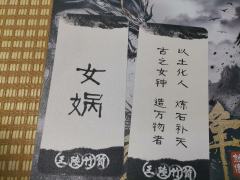 女娲
以土化人 炼石补天
古之女种 造万物者